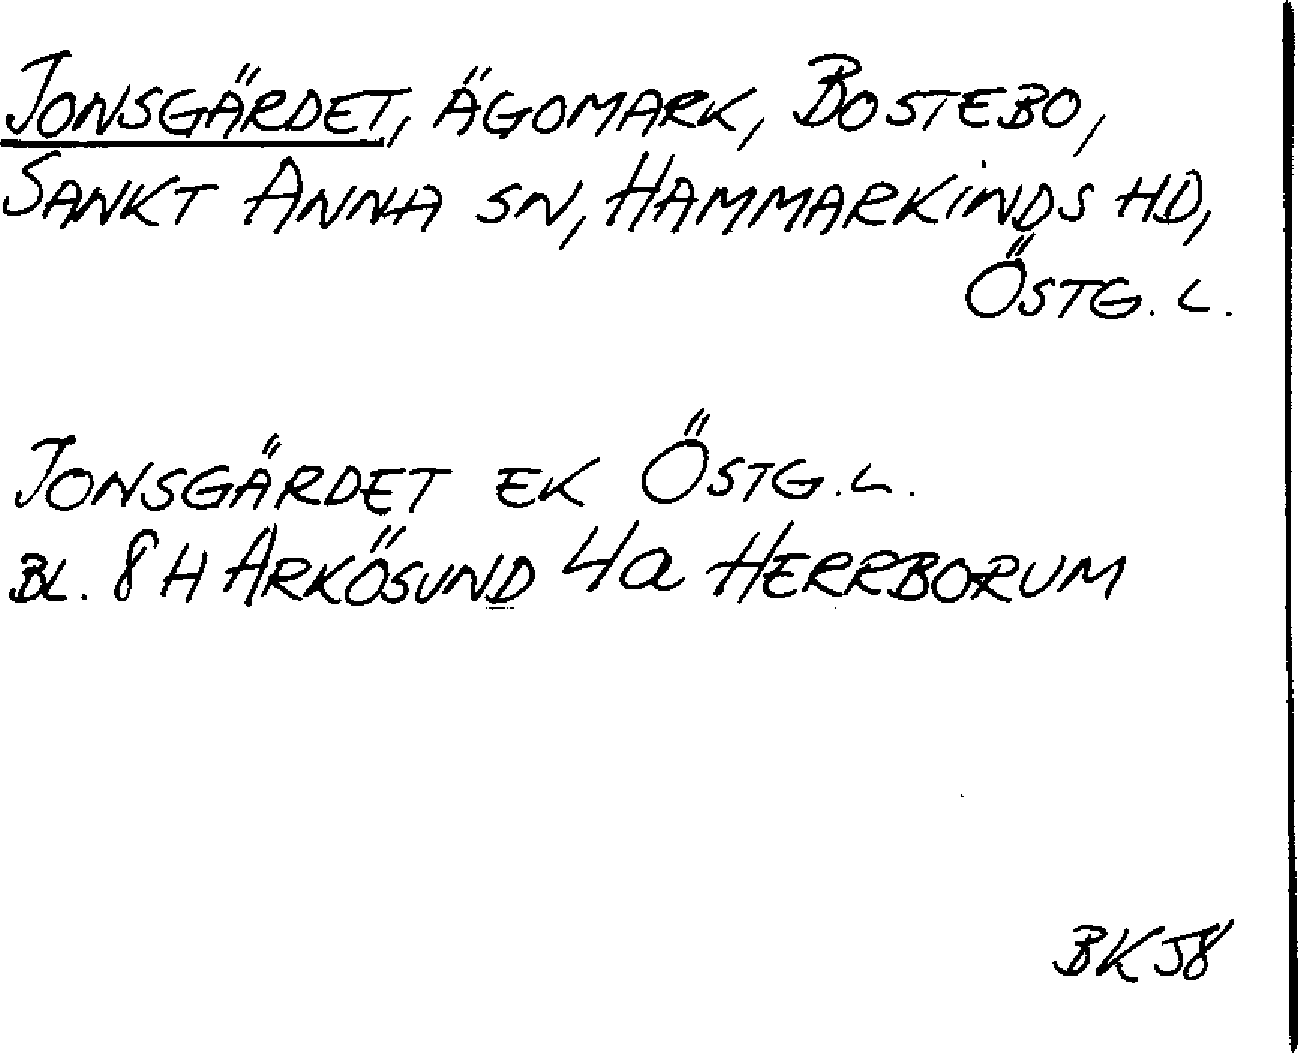 JONSGÄRDET, ÄGOMARK, BOSTEBO,
SANKT ANNA SN, HAMMARKINDS HD,
ÖSTG. L.
JONSGÄRDET EK ÖSTG. L.
BL. 8 H ARKÖSUND 4a HERRBORUM
BK 58